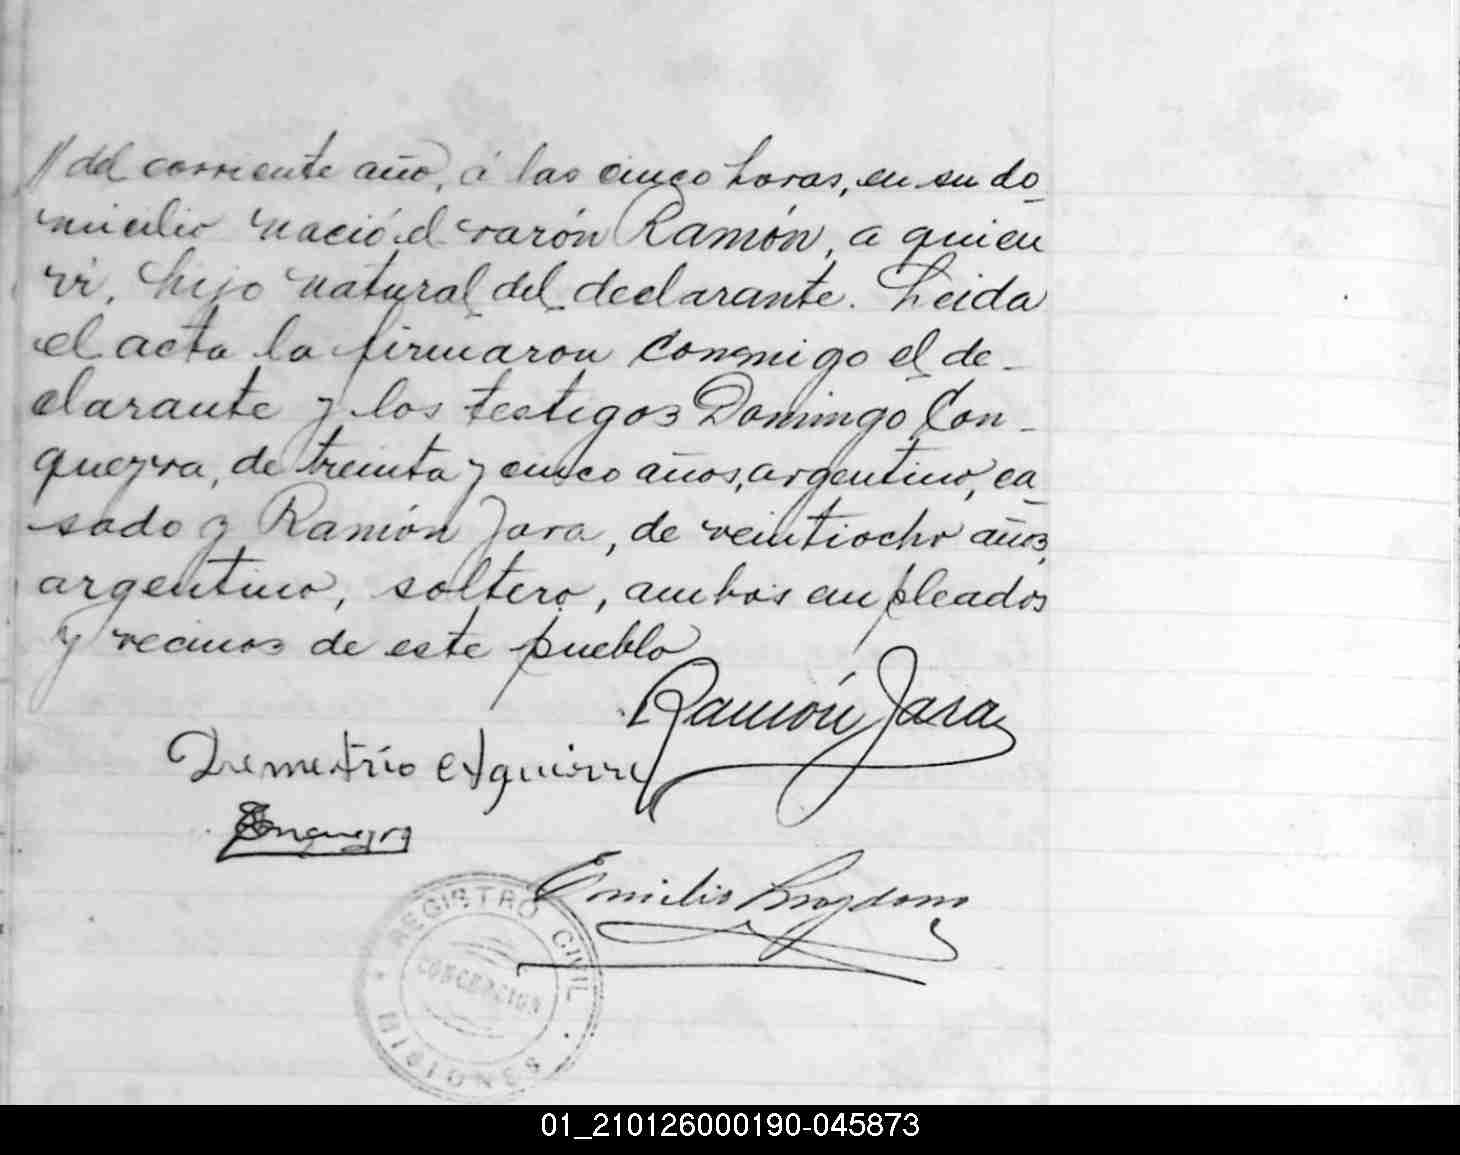 // del corriente año, á las cinco horas, en su do-
micilio nació el varón Ramón, a quien
ví, hijo natural del declarante. Leida
el acta la firmaron conmigo el de-
clarante y los testigos Domingo Con-
gueyra, de treinta y cinco años, argentino, ca-
sado y Ramón Jara, de veintiocho años,
argentino, soltero, ambos empleados
y vecinos de este pueblo
Ramón Jara
Demetrio Aguirre
Emilio
REGISTRO CIVIL
CONCEPCION
MISIONES
01_210126000190-045873